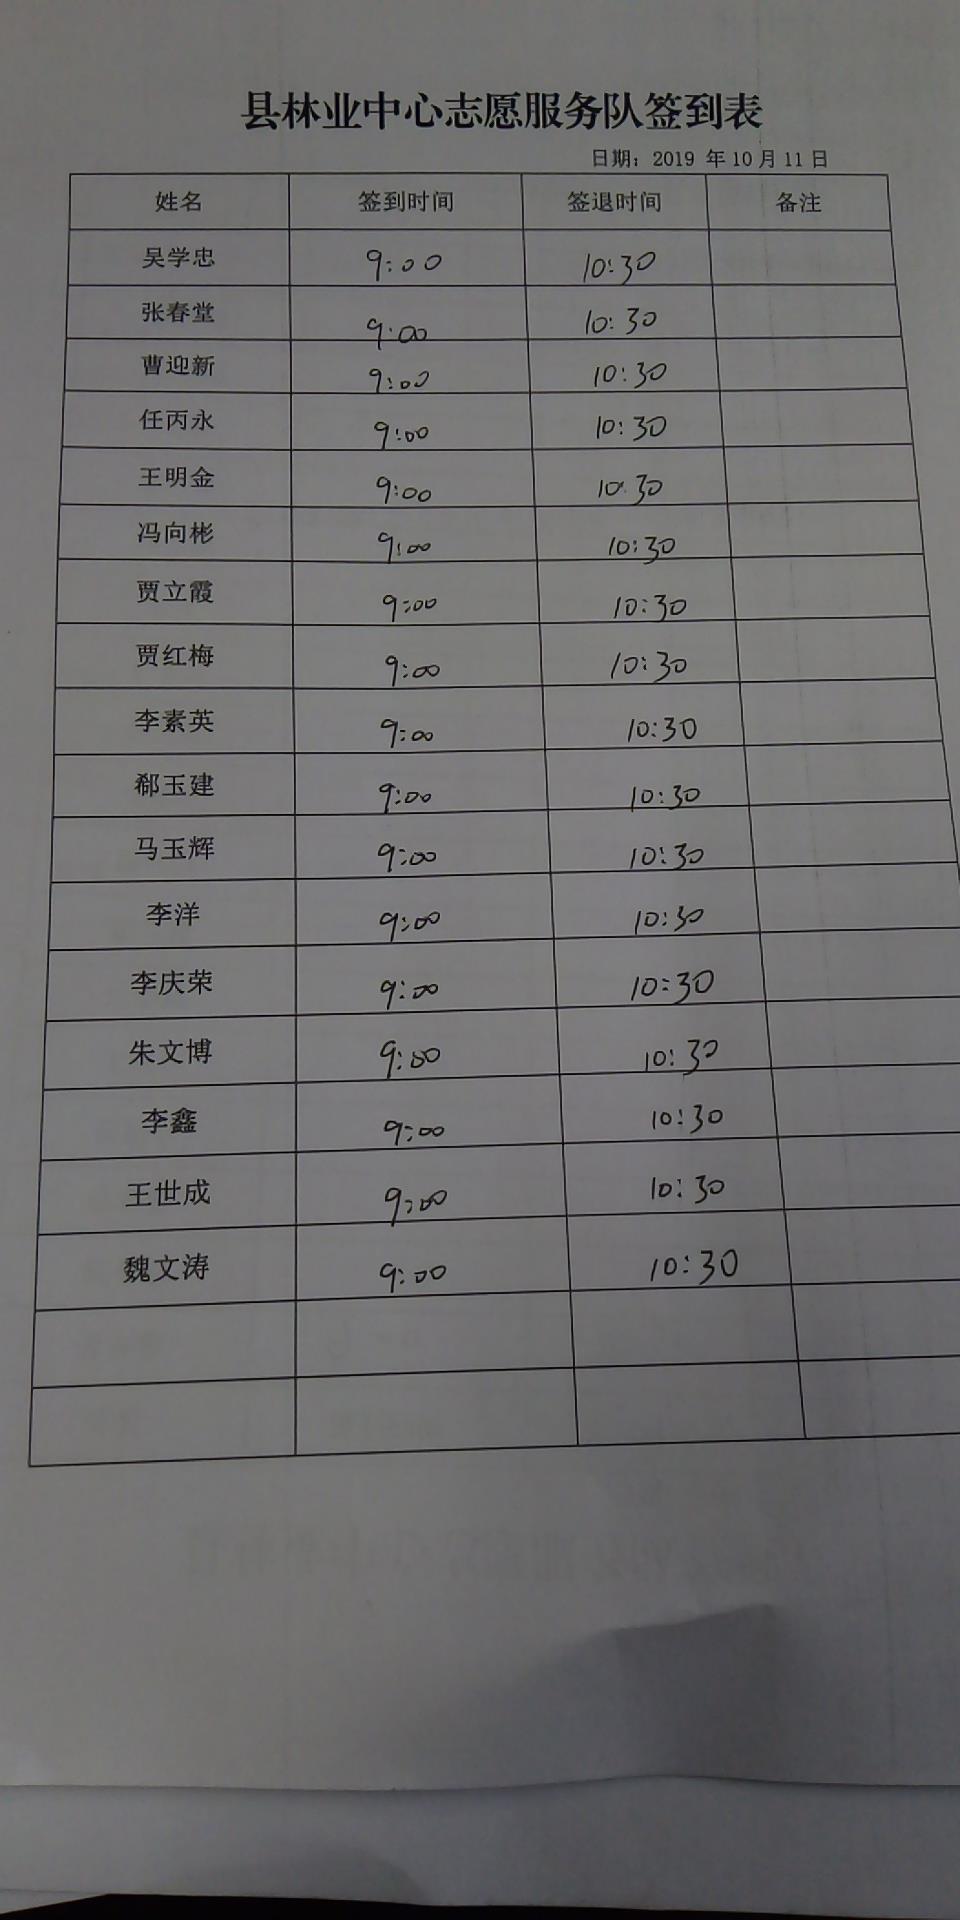 县林业中心志愿服务队签到表
日期：2019 年10月11日
姓名 签到时间 签退时间 备注
吴学忠 9:00 10:30
张春堂 9:00 10:30
曹迎新 9:00 10:30
任丙永 9:00 10:30
王明金 9:00 10:30
冯向彬 9:00 10:30
贾立霞 9:00 10:30
贾红梅 9:00 10:30
李素英 9:00 10:30
郗玉建 9:00 10:30
马玉辉 9:00 10:30
李洋 9:00 10:30
李庆荣 9:00 10:30
朱文博 9:00 10:30
李鑫 9:00 10:30
王世成 9:00 10:30
魏文涛 9:00 10:30